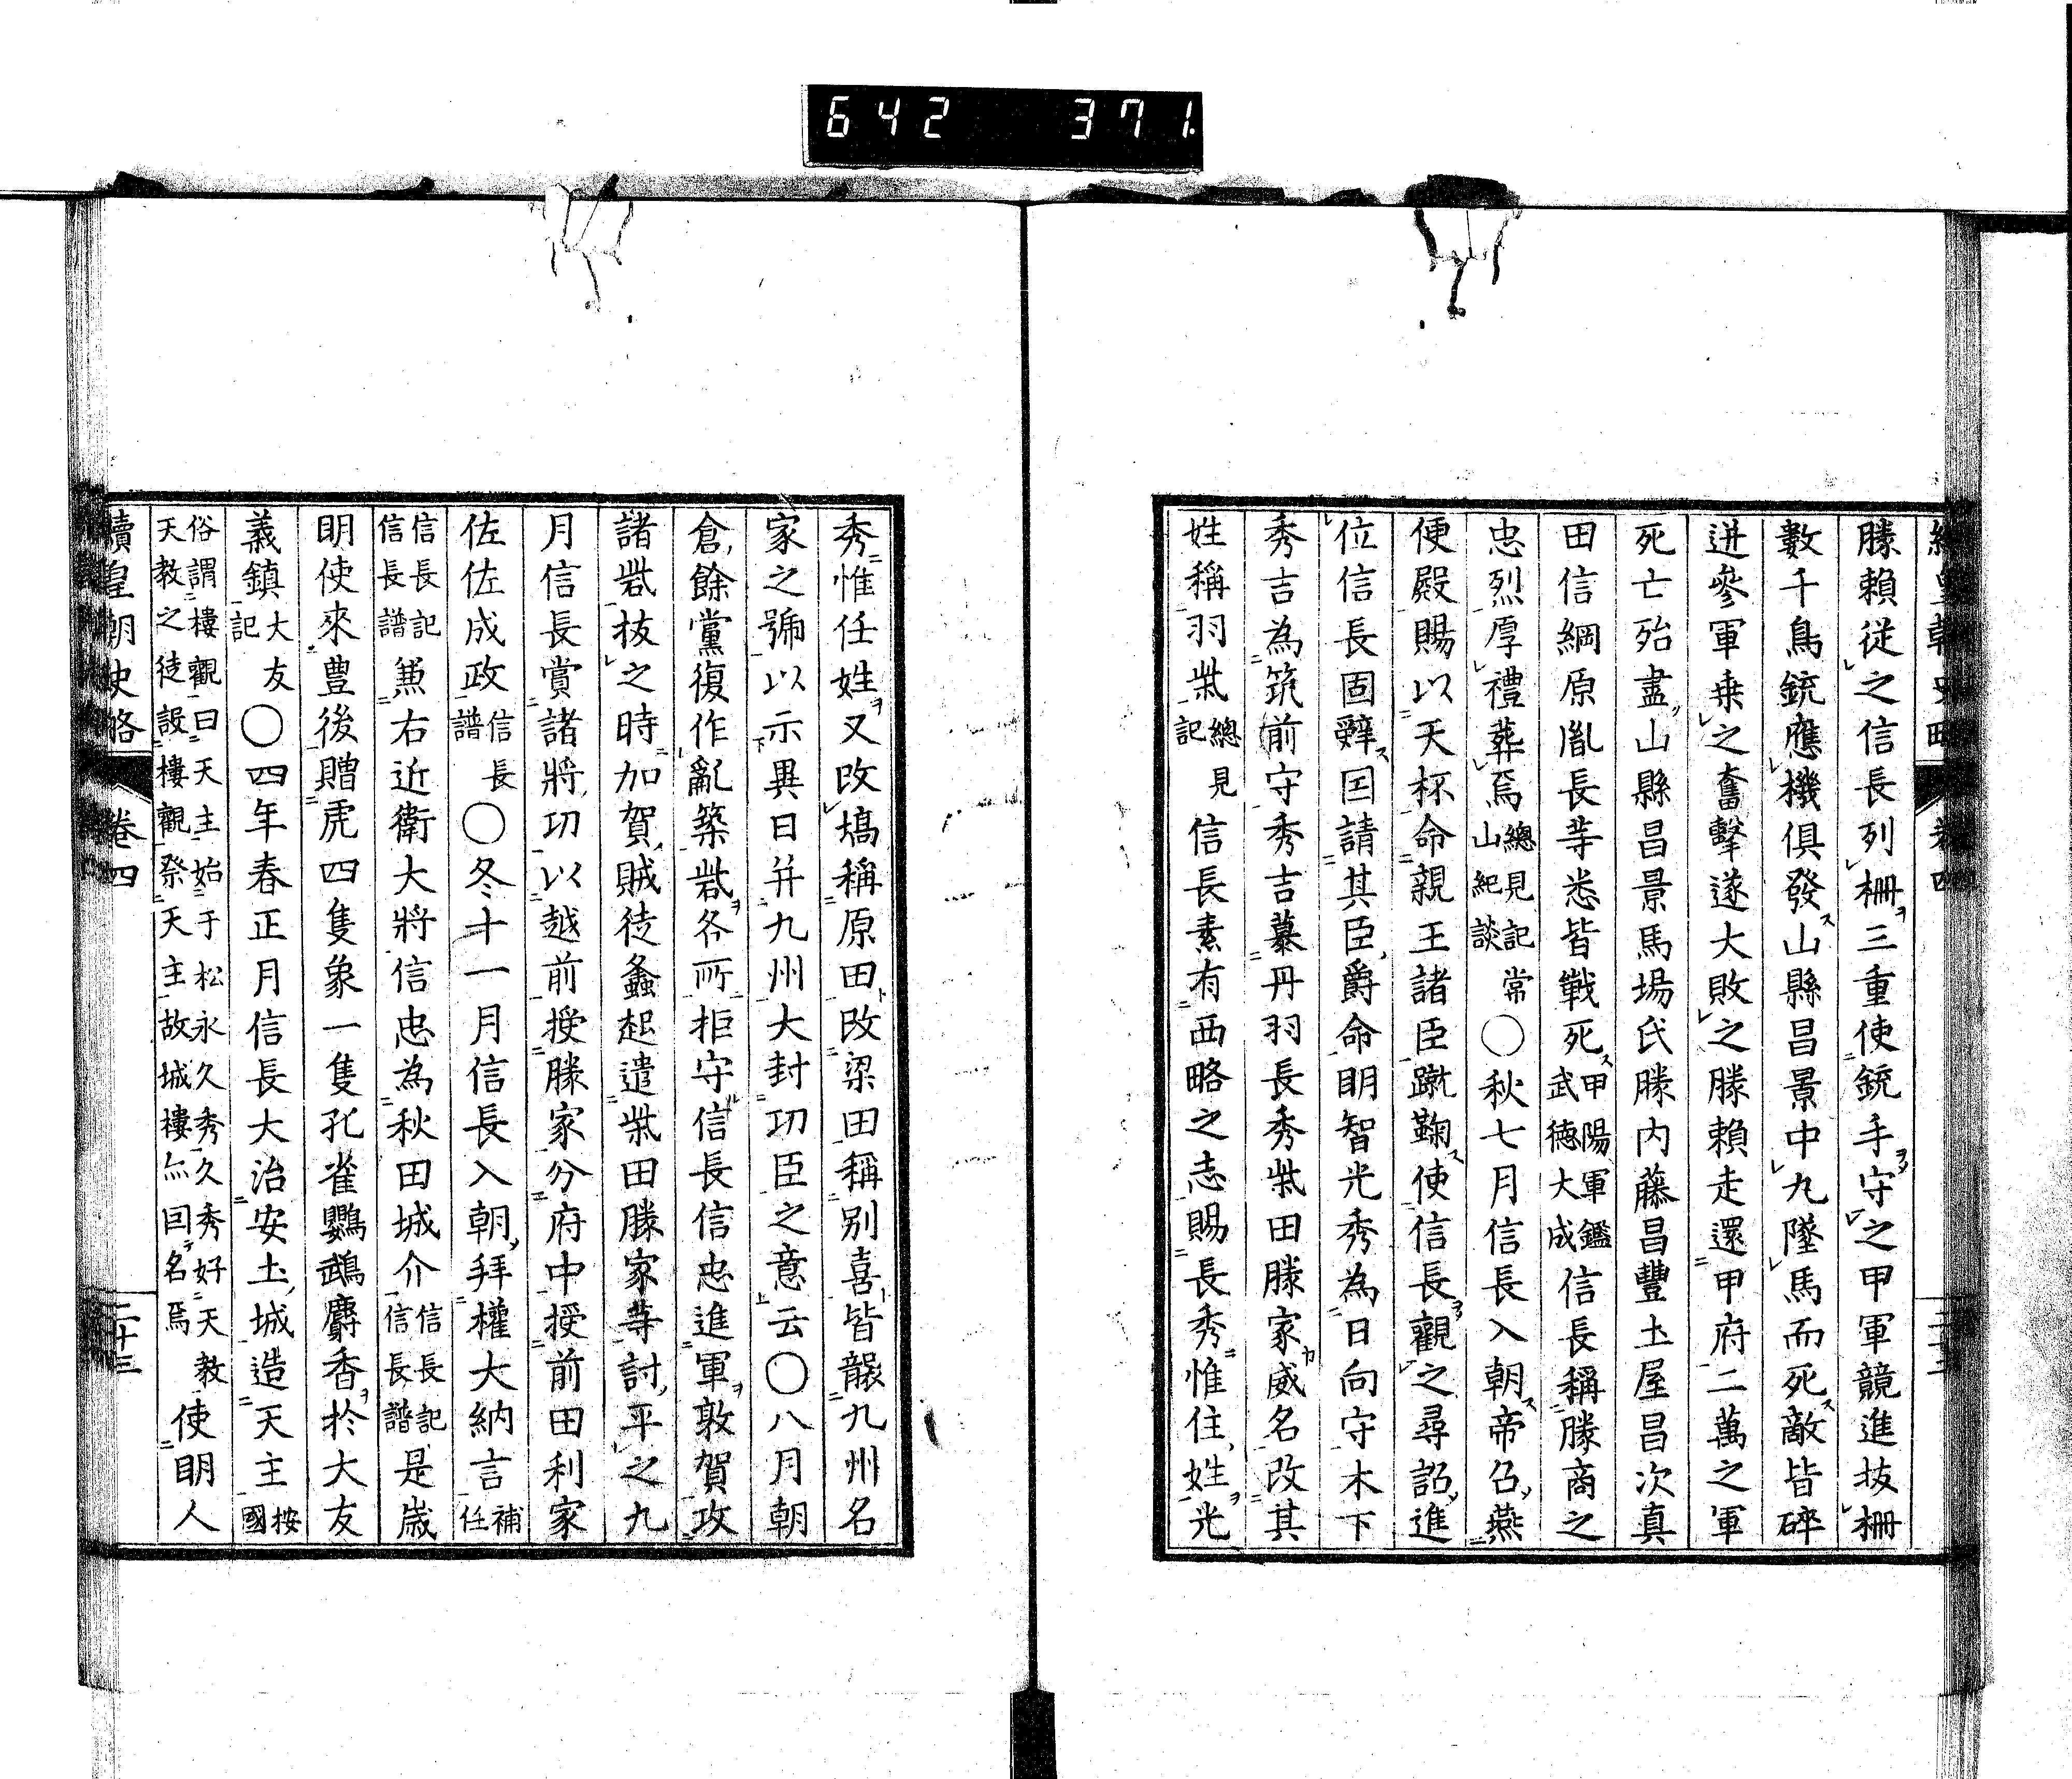 642 371.
勝賴從之信長列柵三重使銃手守之甲軍競進拔柵
數千鳥銃應機俱發山縣昌景中丸墜馬而死敵皆碎
迸參軍乗之奮擊遂大敗之勝賴走還甲府二萬之軍
死亡殆盡山縣昌景馬場氏勝內藤昌豐土屋昌次真
田信綱原胤長等悉皆戰死甲陽軍鑑武德大成信長稱勝商之
忠烈厚禮葬焉總見記常山紀談〇秋七月信長入朝帝召燕
便殿賜以天杯命親王諸臣蹴鞠使信長觀之尋詔進
位信長固辭因請其臣爵命明智光秀為日向守木下
秀吉為筑前守秀吉慕丹羽長秀柴田勝家威名改其
姓稱羽柴總見記信長素有西略之志賜長秀惟住姓光
秀惟任姓又改塙稱原田改梁田稱別喜皆襲九州名
家之號以示異日并九州大封功臣之意云〇八月朝
倉餘黨復作亂築砦各所拒守信長信忠進軍敦賀攻
諸砦拔之時加賀賊徒蠭起遣柴田勝家等討平之九
月信長賞諸將功以越前授勝家分府中授前田利家
佐佐成政信長譜〇冬十一月信長入朝拜權大納言補任
信長記信長譜兼右近衛大將信忠為秋田城介信長記信長譜是歲
明使來豊後贈虎四隻象一隻孔雀鸚鵡麝香於大友
義鎮大友記〇四年春正月信長大治安土城造天主按國
俗謂樓觀曰天主始于松永久秀久秀好天教天教之徒設樓觀祭天主故城樓亦因名焉使明人
續皇朝史略 卷四 二十三